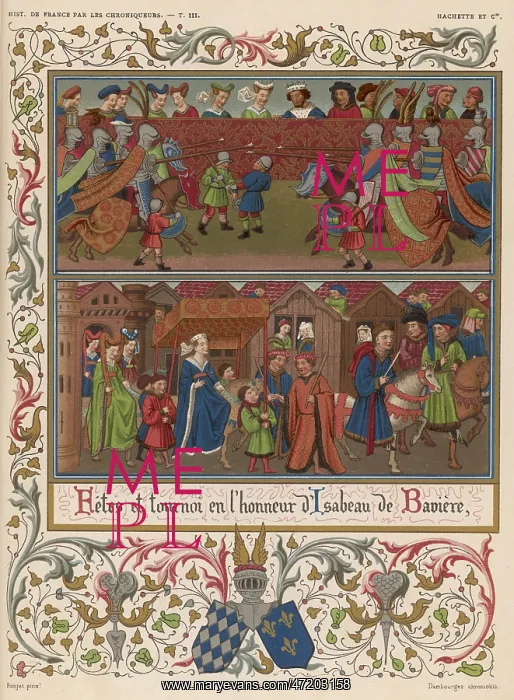 HIST. DE FRANCE PAR LES CHRONIQUEURS. — T. III.
HACHETTE ET Cie.
ME
PL
ME
PL
Fêtes et tournoi en l'honneur d'Isabeau de Bavière,
Dambourgez chromolith.
www.maryevans.com/47203158